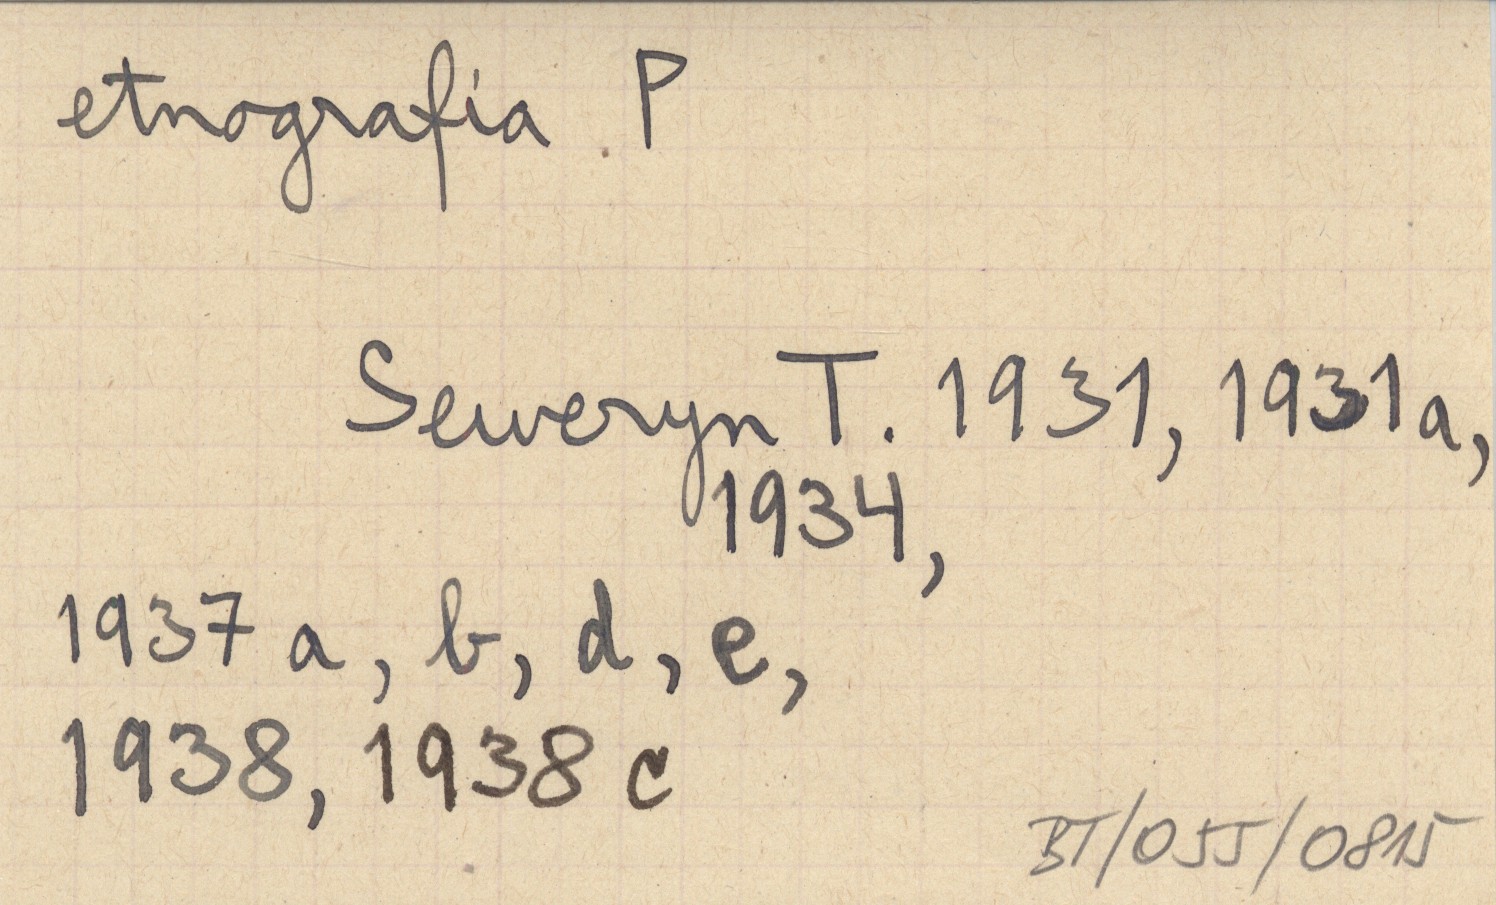 etnografia P
Seweryn T. 1931, 1931a,
1934,
1937 a, b, d, e,
1938, 1938 c
BT/055/0815